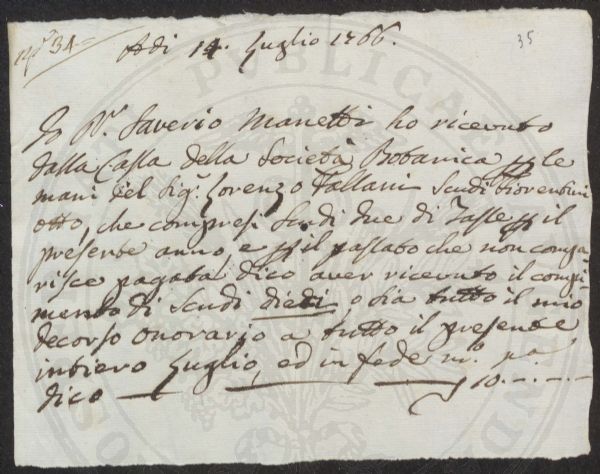 N.º 34
35
Adi 14. Luglio 1766.
Io D.r Saverio Manetti ho ricevuto
dalla Cassa della Società Botanica p le
mani del Sig.r Lorenzo Fallani Scudi Fiorentini
otto, che compresi scudi due di Tasse p il
presente anno, e p il passato che non compa
risce pagata dico aver ricevuto il compi
mento di scudi dieci, o sia tutto il mio
decorso onorario a tutto il presente
intiero Luglio, ed in fede m.º pa
dico 10.